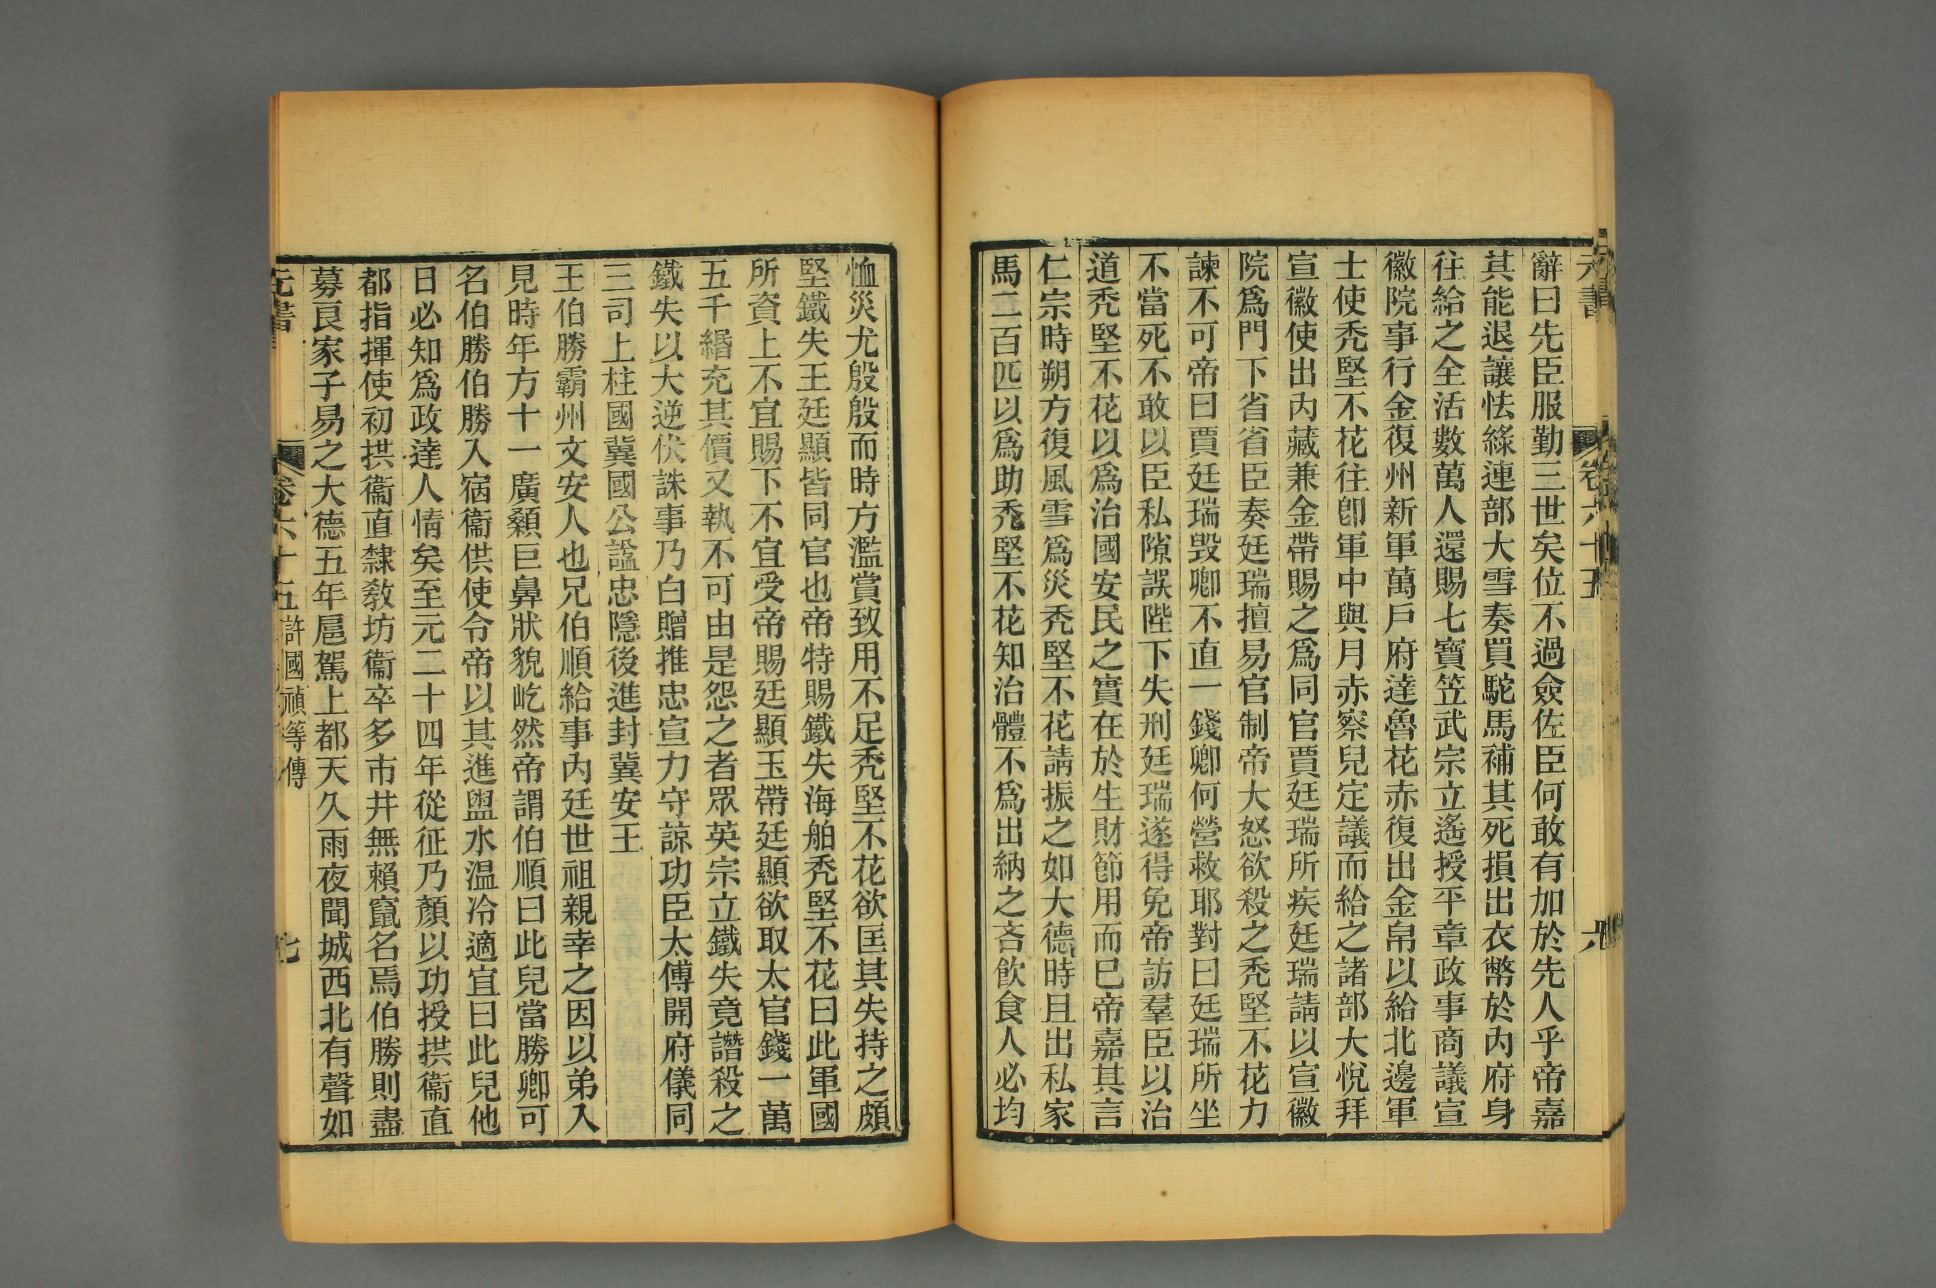 元書
卷六十五
六
辭曰先臣服勤三世矣位不過僉佐臣何敢有加於先人乎帝嘉
其能退讓怯綠連部大雪奏買駝馬補其死損出衣幣於內府身
往給之全活數萬人還賜七寶笠武宗立遙授平章政事商議宣
徽院事行金復州新軍萬戶府達魯花赤復出金帛以給北邊軍
士使禿堅不花往卽軍中與月赤察兒定議而給之諸部大悅拜
宣徽使出內藏兼金帶賜之爲同官賈廷瑞所疾廷瑞請以宣徽
院爲門下省省臣奏廷瑞擅易官制帝大怒欲殺之禿堅不花力
諫不可帝曰賈廷瑞毁卿不直一錢卿何營救耶對曰廷瑞所坐
不當死不敢以臣私隙誤陛下失刑廷瑞遂得免帝訪羣臣以治
道禿堅不花以爲治國安民之實在於生財節用而巳帝嘉其言
仁宗時朔方復風雪爲災禿堅不花請振之如大德時且出私家
馬二百匹以爲助禿堅不花知治體不爲出納之吝飲食人必均
恤災尤殷殷而時方濫賞致用不足禿堅不花欲匡其失持之頗
堅鐵失王廷顯皆同官也帝特賜鐵失海舶禿堅不花曰此軍國
所資上不宜賜下不宜受帝賜廷顯玉帶廷顯欲取太官錢一萬
五千緡充其價又執不可由是怨之者眾英宗立鐵失竟譖殺之
鐵失以大逆伏誅事乃白贈推忠宣力守諒功臣太傅開府儀同
三司上柱國冀國公諡忠隱後進封冀安王
王伯勝霸州文安人也兄伯順給事內廷世祖親幸之因以弟入
見時年方十一廣顙巨鼻狀貌屹然帝謂伯順曰此兒當勝卿可
名伯勝伯勝入宿衞供使令帝以其進盥水温冷適宜曰此兒他
日必知爲政達人情矣至元二十四年從征乃顏以功授拱衞直
都指揮使初拱衞直隸教坊衞卒多市井無賴竄名焉伯勝則盡
募良家子易之大德五年扈駕上都天久雨夜聞城西北有聲如
元書
卷六十五 許國禎等傳
七